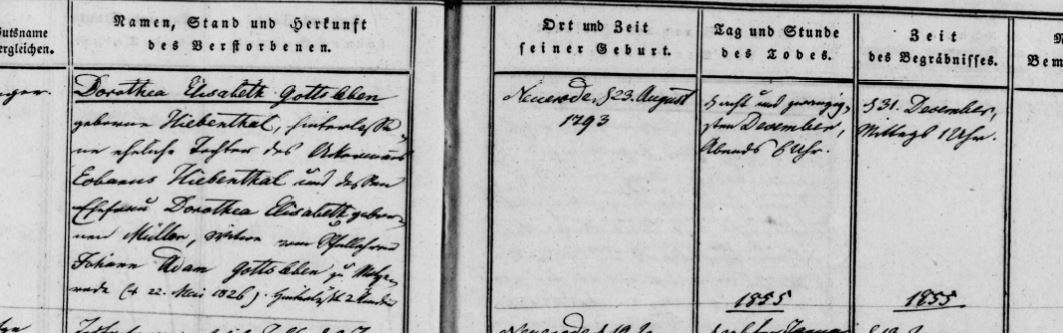 utsname
ergleichen.
Namen, Stand und Herkunft
des Verstorbenen.
Ort und Zeit
seiner Geburt.
Tag und Stunde
des Todes.
Zeit
des Begräbnisses.
Bem
Dorothea Elisabeth Gottsleben
geborene Hiebenthal, hinterlasse
ne eheliche Tochter des Ackermanns
Eobanus Hiebenthal und dessen
Ehefrau Dorothea Elisabeth gebor
nen Müller, Witwe vom Schullehrer
Johann Adam Gottsleben zu
rode († 22. Mai 1826). 2 Kinder
Neuerode, d 23. August
1793
und zwanzig
sten December,
Abends 6 Uhr.
1855
d 31. December,
Mittags 1 Uhr.
1855